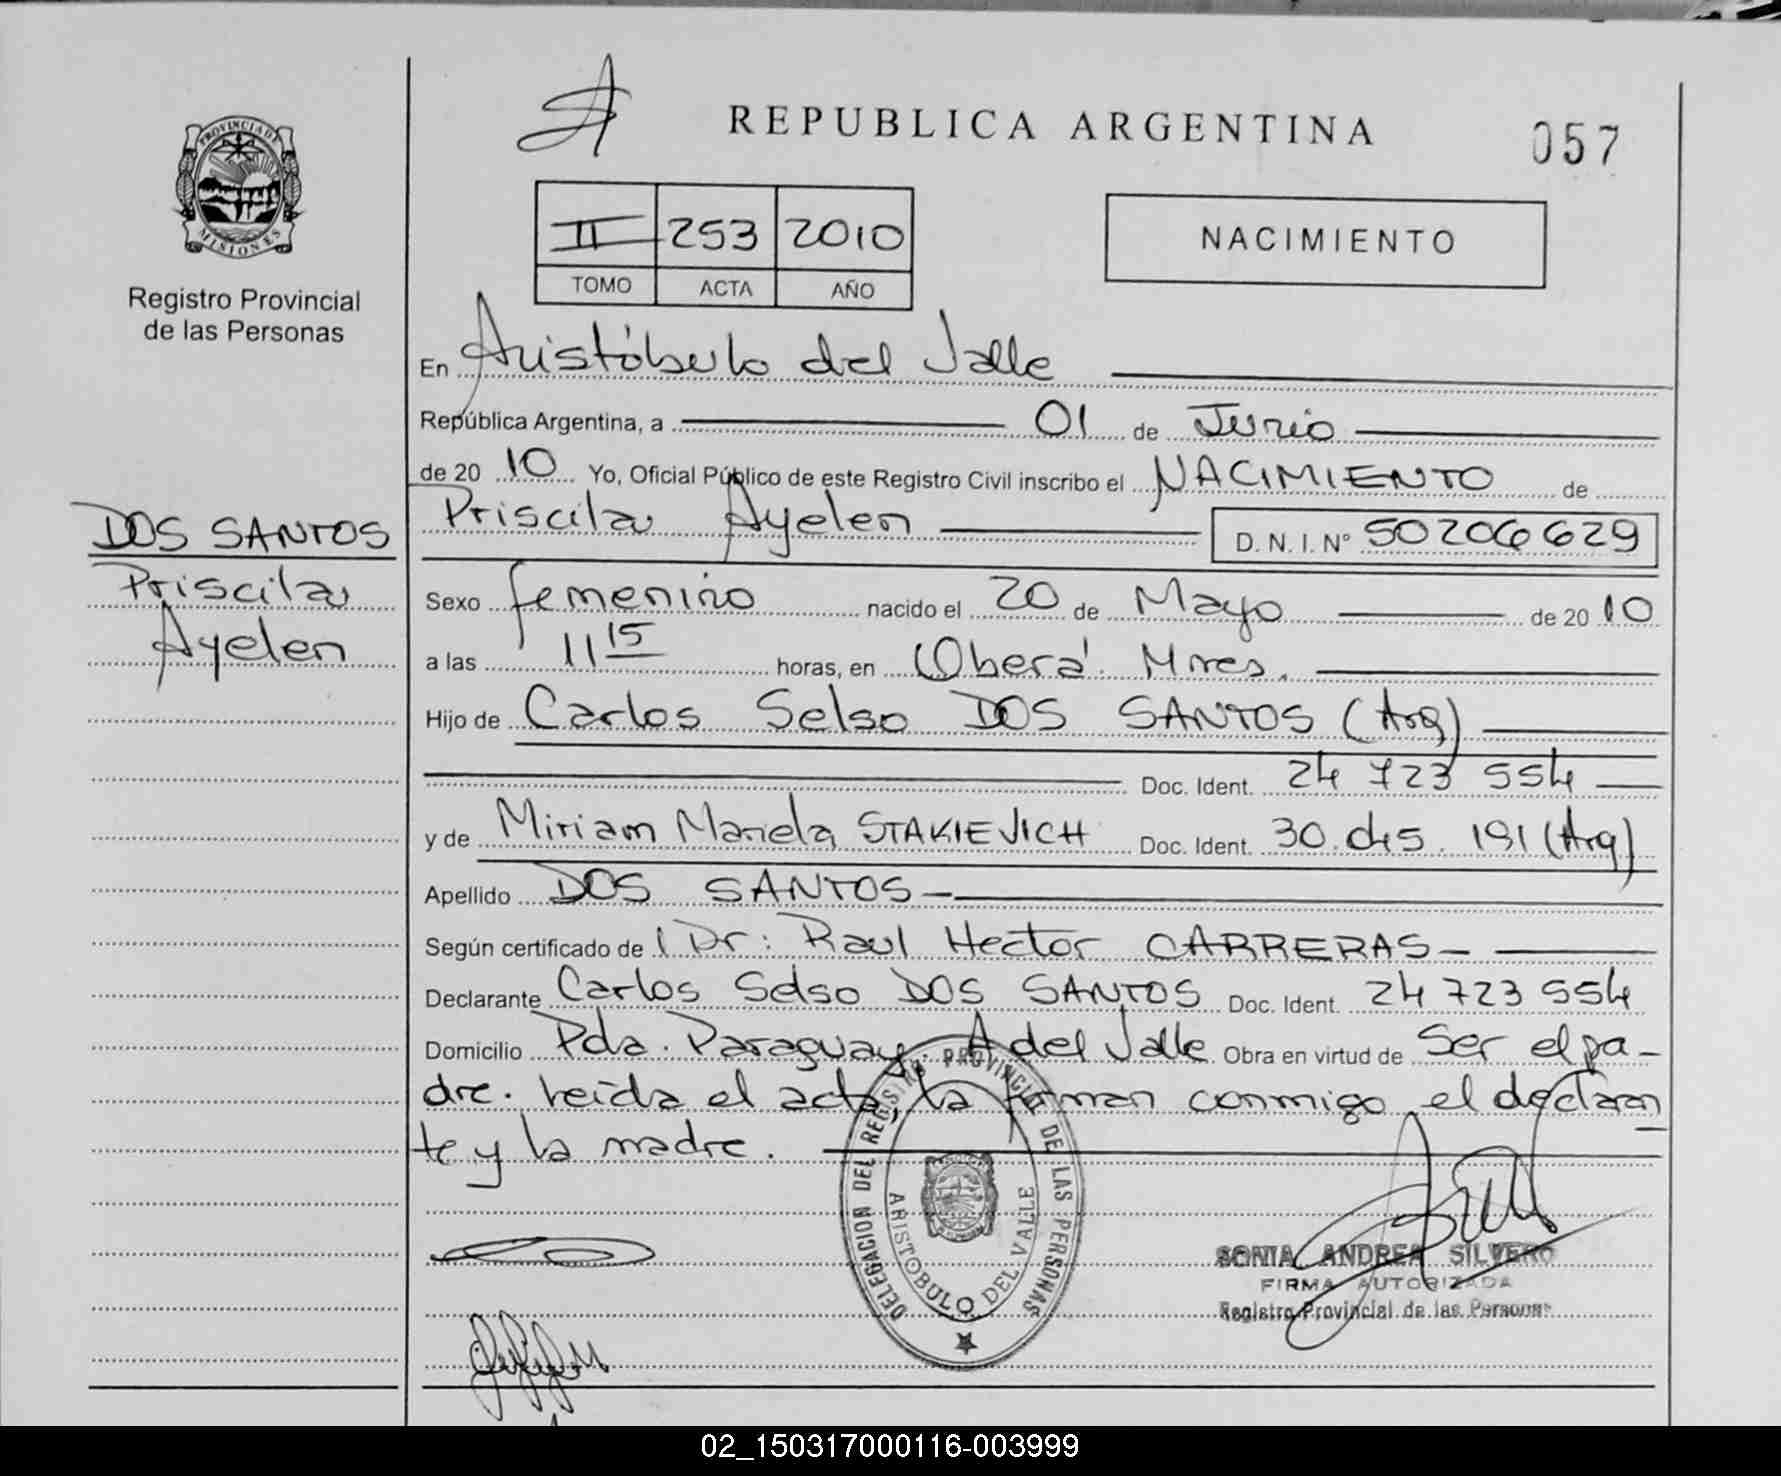 REPUBLICA ARGENTINA
057
PROVINCIA DE
MISIONES
Registro Provincial
de las Personas
II 253 2010
TOMO ACTA AÑO
NACIMIENTO
En Aristóbulo del Valle
República Argentina, a 01 de Junio
de 20 10 Yo, Oficial Público de este Registro Civil inscribo el NACIMIENTO de
Priscila Ayelen D.N.I. Nº 50206629
DOS SANTOS
Priscila
Ayelen
Sexo femenino nacido el 20 de Mayo de 20 10
a las 11 15 horas, en Oberá. Mnes.
Hijo de Carlos Selso DOS SANTOS (Arg)
Doc. Ident. 24 723 554
y de Miriam Mariela STAKIEVICH Doc. Ident. 30. 191 (Arg)
Apellido DOS SANTOS
Según certificado de Dr: Raul Hector CARRERAS
Declarante Carlos Selso DOS SANTOS Doc. Ident. 24 723 554
Domicilio Pda. Paraguay. A del Valle Obra en virtud de Ser el pa-
dre. Leida el acta, la firman conmigo el declaran
te y la madre.
DELEGACION DEL REGISTRO PROVINCIAL DE LAS PERSONAS
ARISTOBULO DEL VALLE
SONIA ANDREA SILVERO
FIRMA AUTORIZADA
Registro Provincial de las Personas
02_150317000116-003999